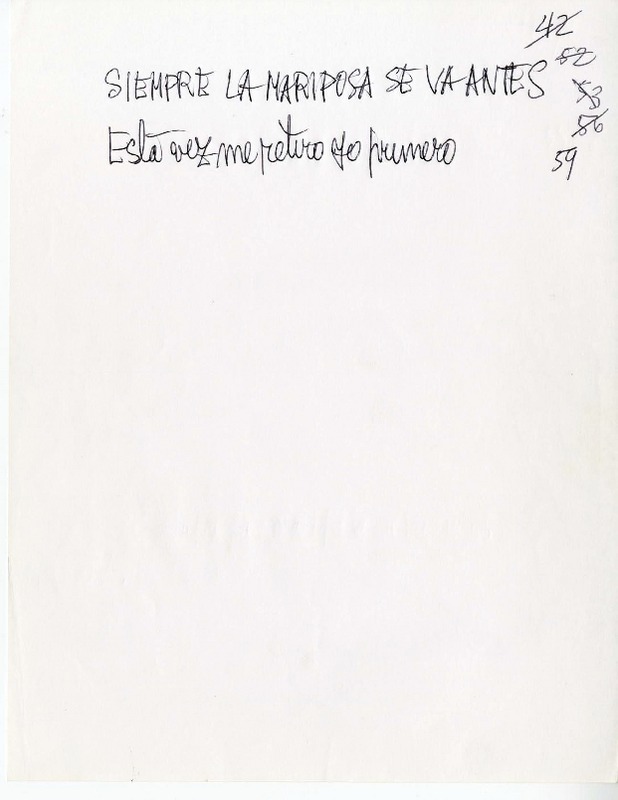 42
52
SIEMPRE LA MARIPOSA SE VA ANTES
53
56
Esta vez me retiro yo primero
59